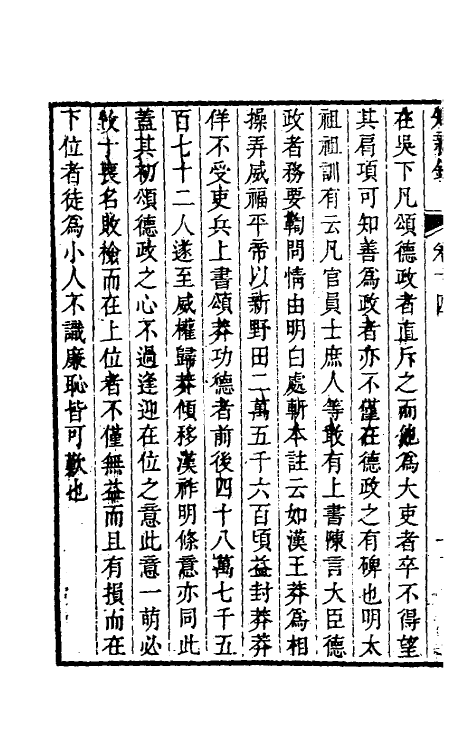 在吳下凡頌德政者直斥之而繼為大吏者卒不得望
其肩項可知善為政者亦不僅在德政之有碑也明太
祖祖訓有云凡官員士庶人等敢有上書陳言大臣德
政者務要鞫問情由明白處斬本註云如漢王莽為相
操弄威福平帝以新野田二萬五千六百頃益封莽莽
佯不受吏兵上書頌莽功德者前後四十八萬七千五
百七十二人遂至威權歸莽傾移漢祚明條意亦同此
蓋其初頌德政之心不過逢迎在位之意此意一萌必
致十喪名敗檢而在上位者不僅無益而且有損而在
下位者徒為小人不識廉恥皆可歎也